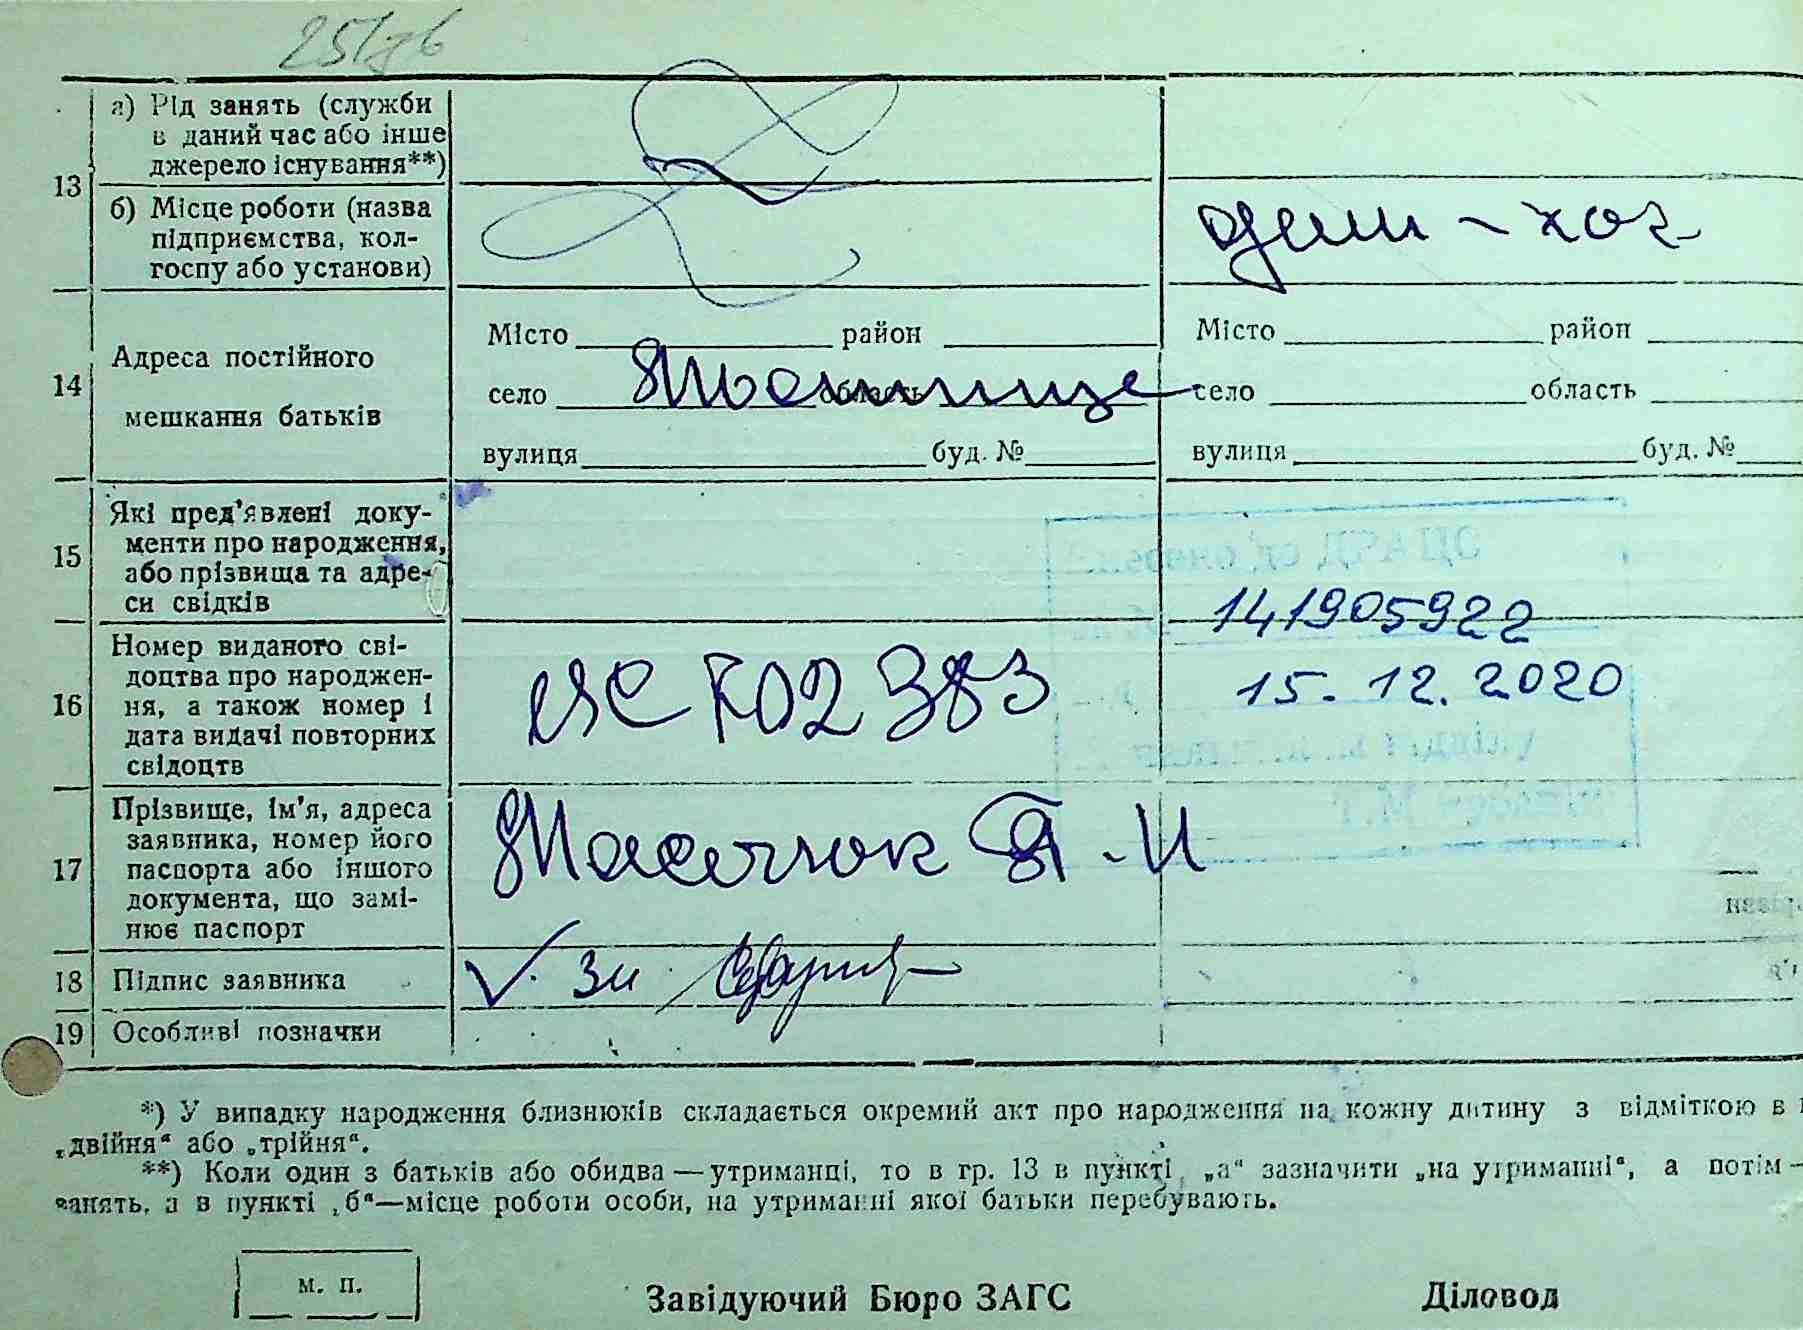 13
а) Рід занять (служби
в даний час або інше
джерело існування**)
б) Місце роботи (назва
підприємства, кол-
госпу або установи)
14
Адреса постійного
мешкання батьків
Місто район
село область
вулиця буд. №
Місто район
село область
вулиця буд. №
15
Які пред'явлені доку-
менти про народження,
або прізвища та адре-
си свідків
141905922
16
Номер виданого сві-
доцтва про народжен-
ня, а також номер і
дата видачі повторних
свідоцтв
15.12.2020
17
Прізвище, ім'я, адреса
заявника, номер його
паспорта або іншого
документа, що замі-
нює паспорт
18
Підпис заявника
19
Особливі позначки
*) У випадку народження близнюків складається окремий акт про народження на кожну дитину з відміткою в
„двійня“ або „трійня“.
**) Коли один з батьків або обидва — утриманці, то в гр. 13 в пункті „а“ зазначити „на утриманні“, а потім —
занять, а в пункті „б“—місце роботи особи, на утриманні якої батьки перебувають.
м. п.
Завідуючий Бюро ЗАГС
Діловод